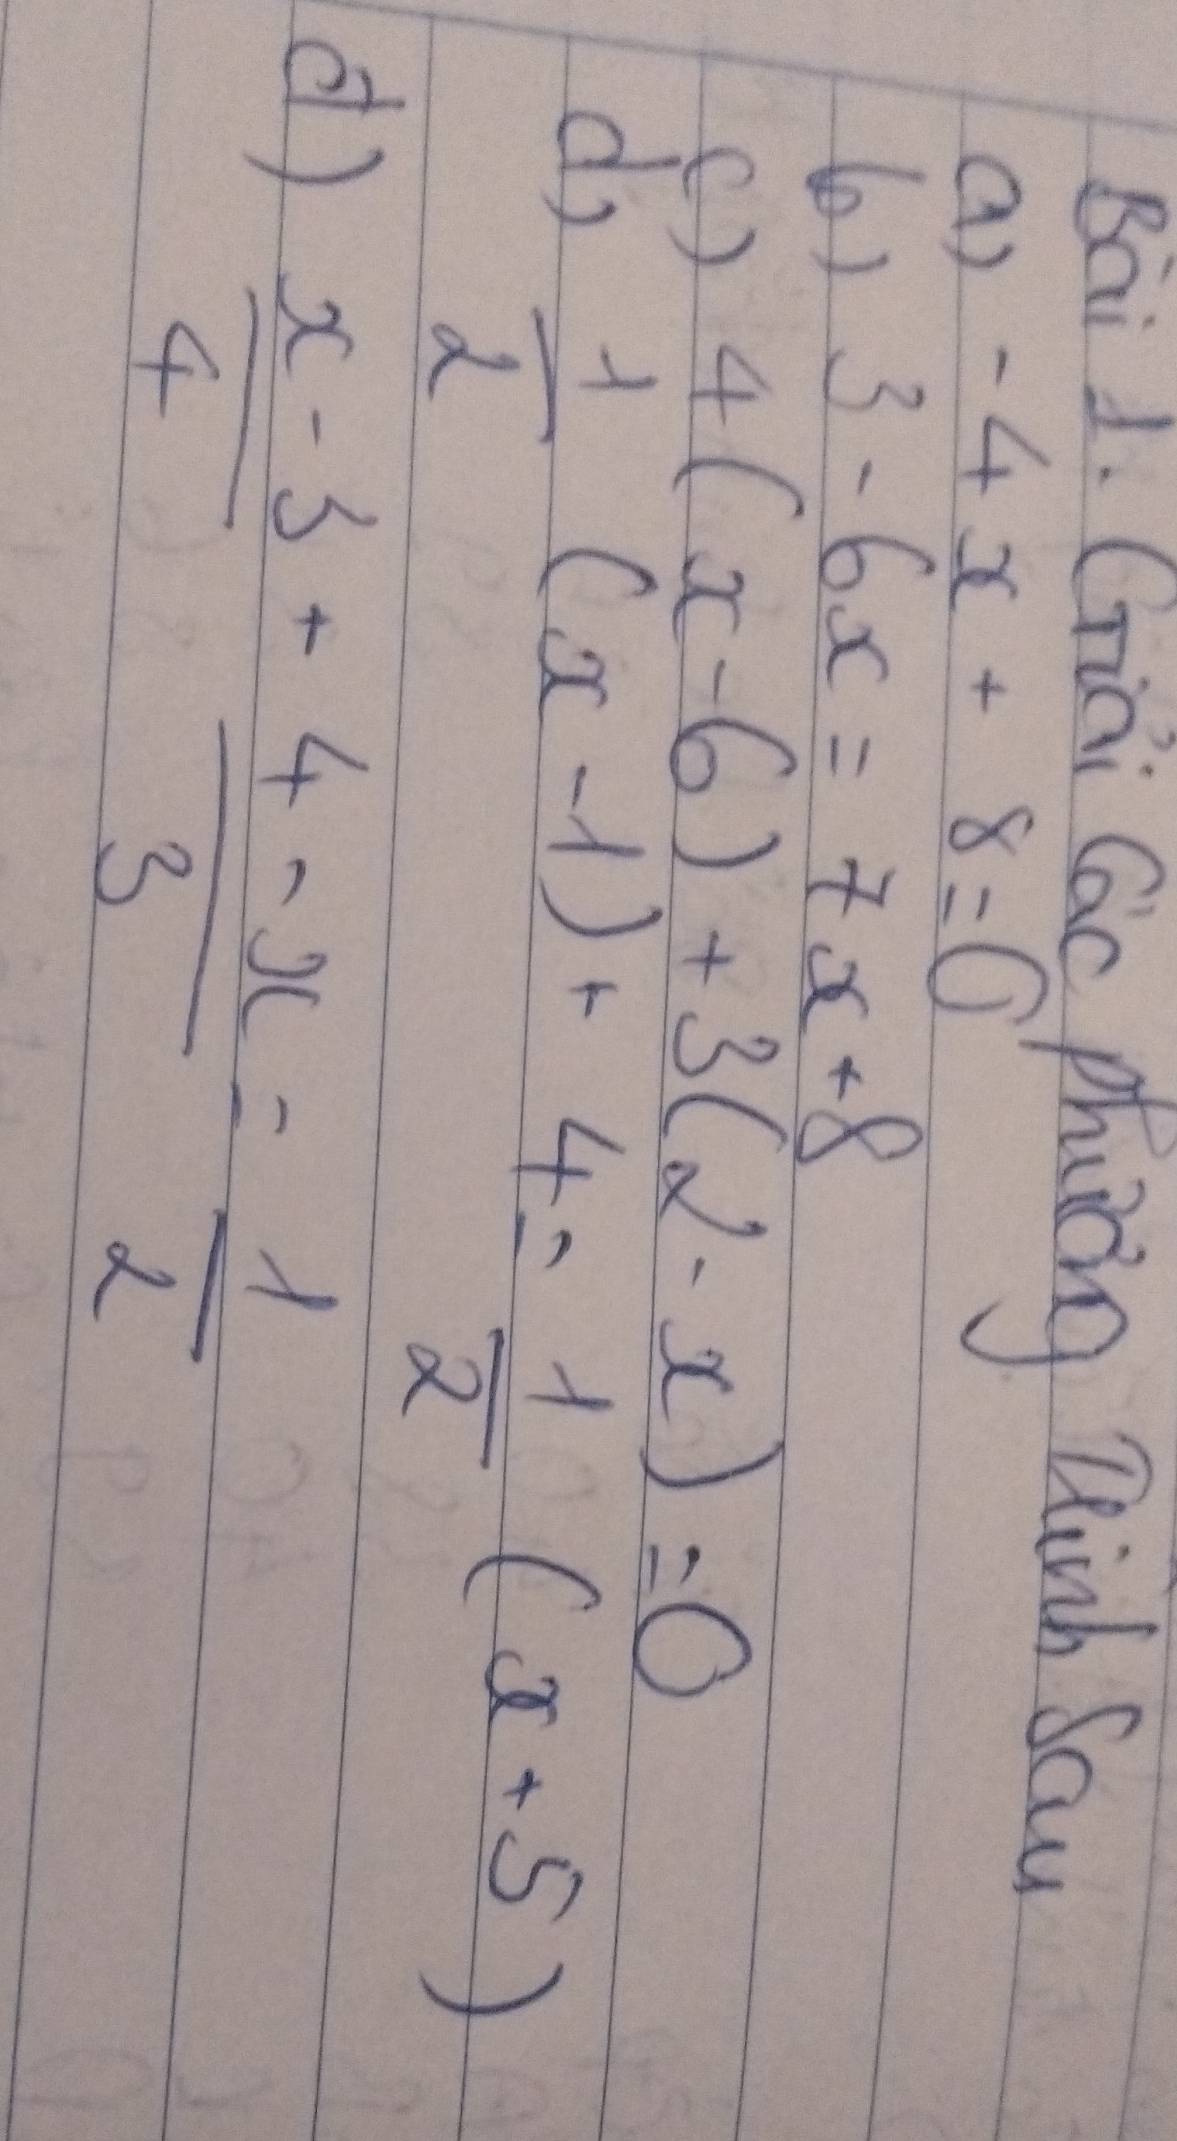 Bài 1. Giải các phương trình sau
a) -4x + 8 = 0
b) 3 - 6x = 7x + 8
c) 4(x - 6) + 3(2 - x) = 0
d) 1/2 (x - 1) + 4 = 1/2 (x + 5)
đ) x - 3/4 + 4 - x/3 = 1/2